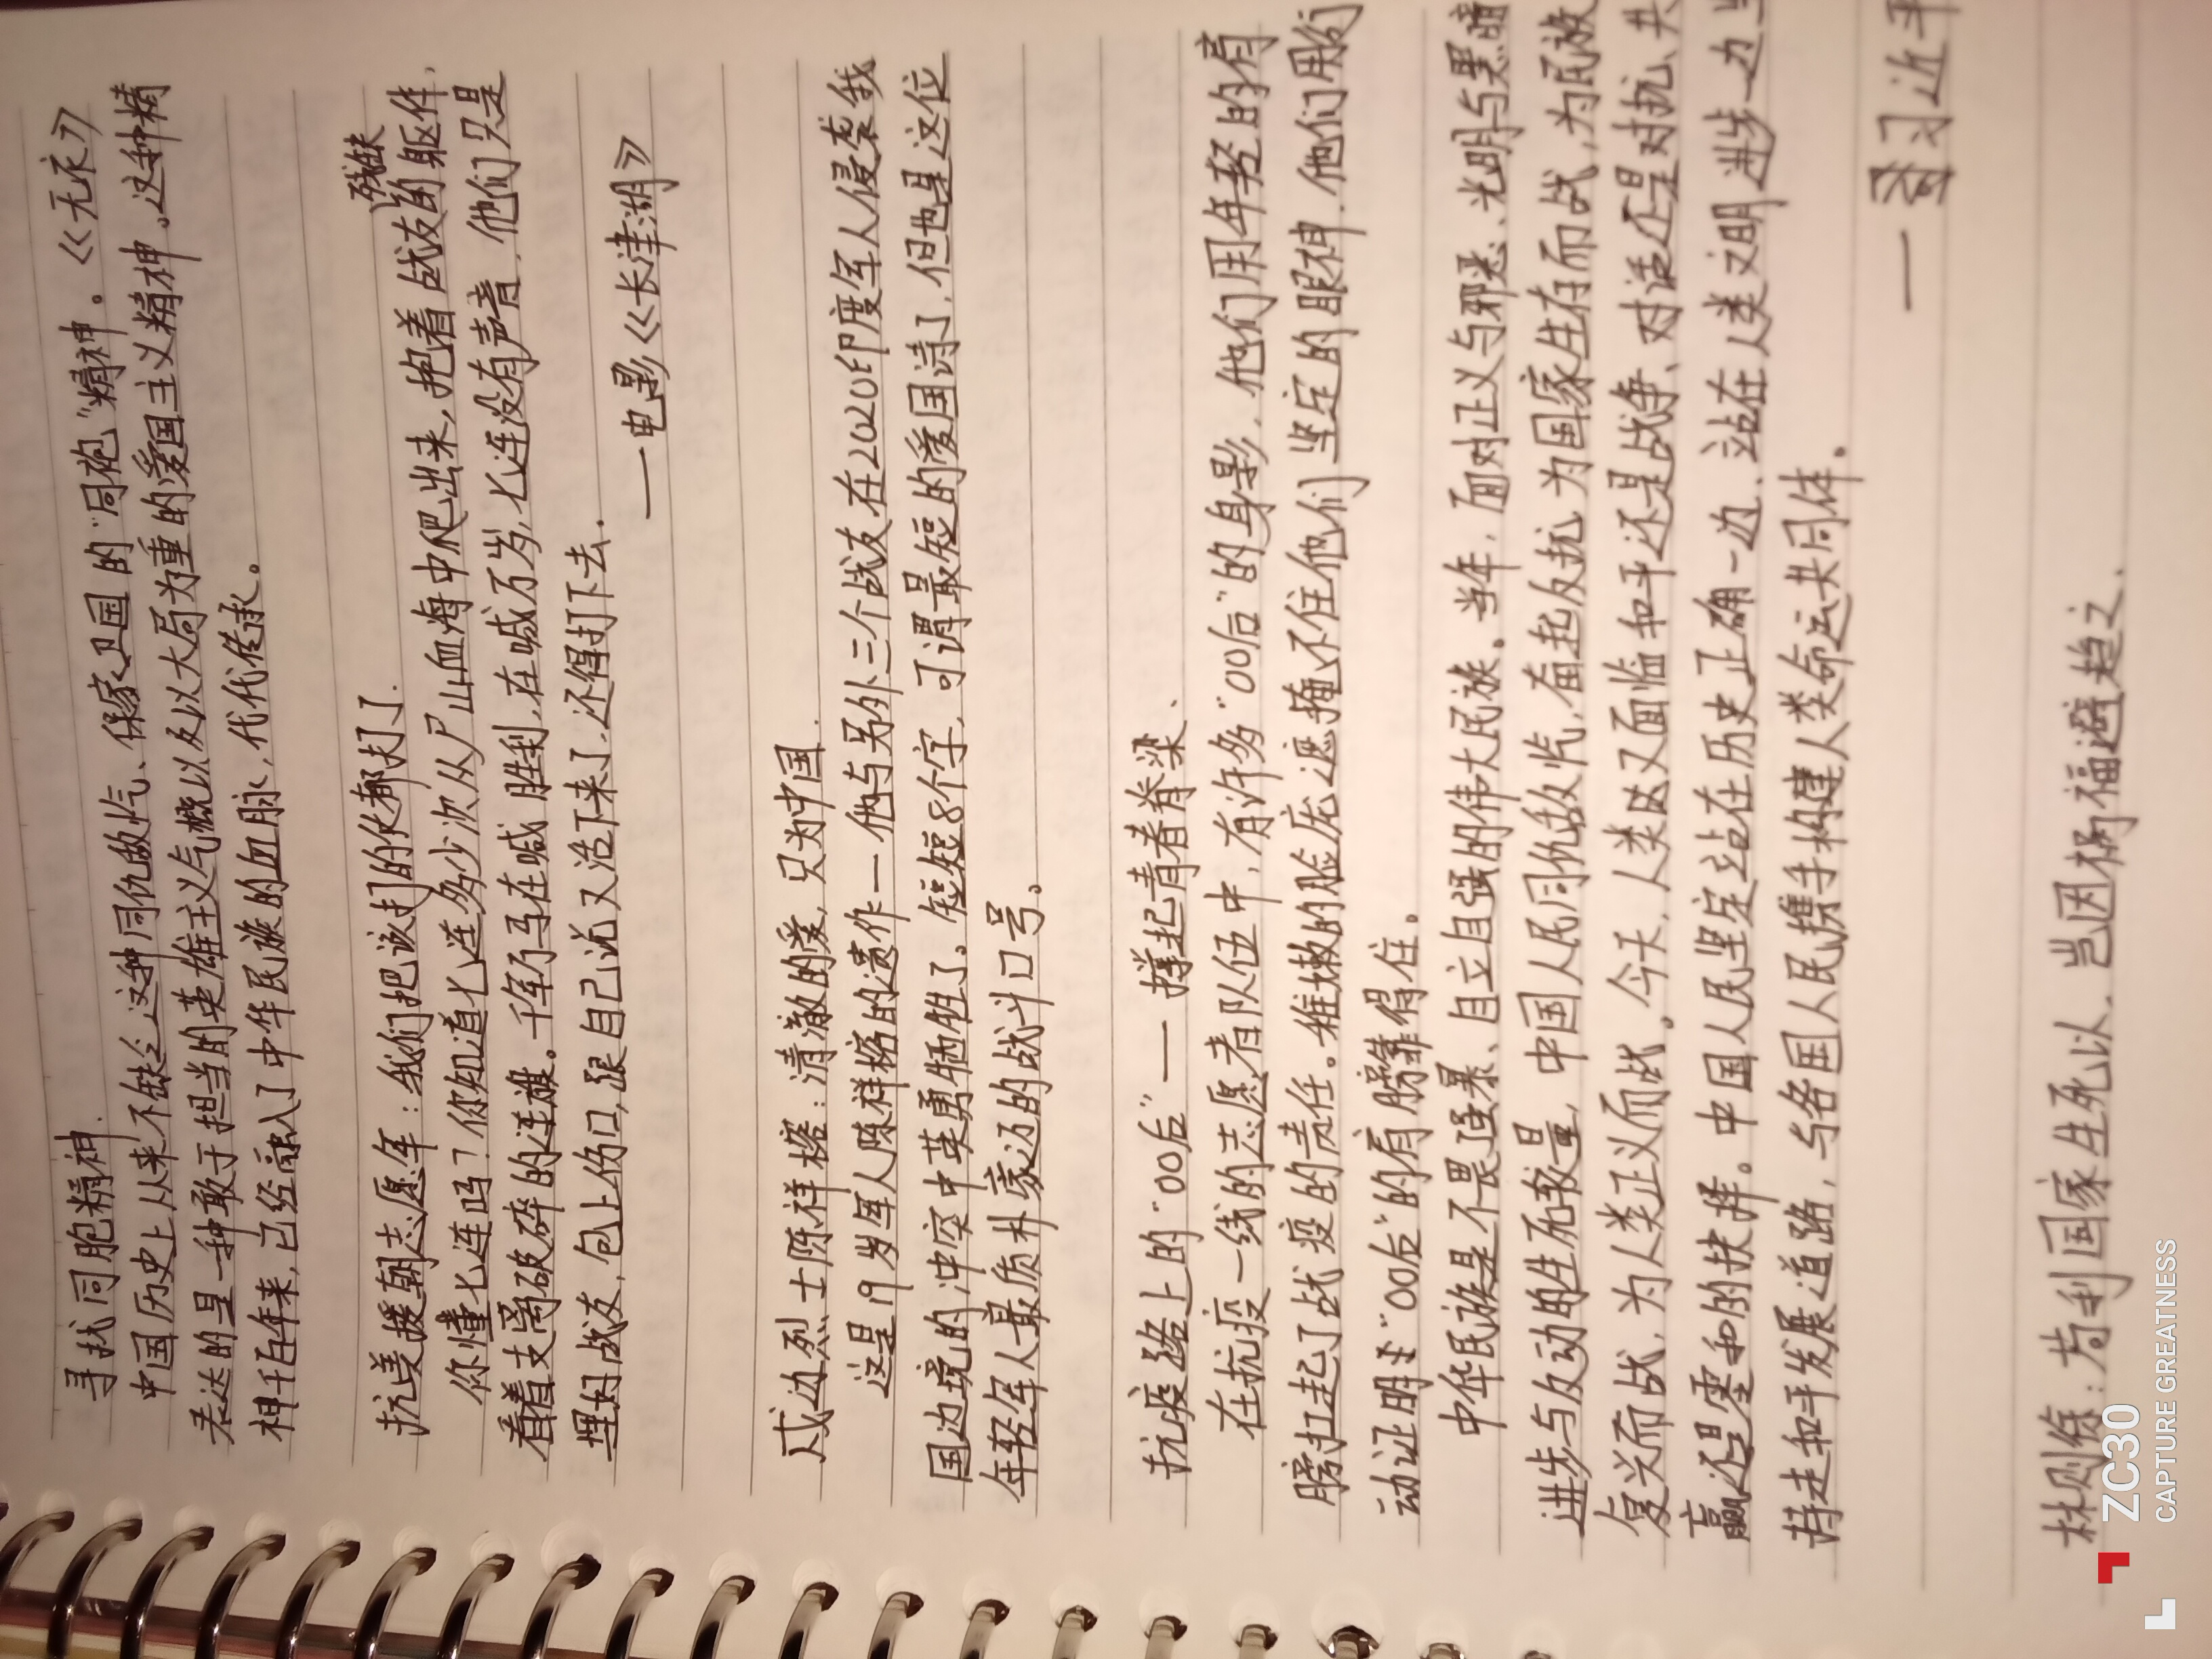 寻找同胞精神.
中国历史上从来不缺乏这种同仇敌忾、保家卫国的“同袍”精神。《无衣》
表达的是一种敢于担当的英雄主义气概以及以大局为重的爱国主义精神。这种精
神千百年来,已经融入了中华民族的血脉,代代传承。
抗美援朝志愿军:我们把该打的仗都打了.
你懂七连吗?你知道七连多少次从尸山血海中爬出来,抱着战友残缺的躯体,
看着支离破碎的连旗。千军万马在喊胜利,在喊万岁,七连没有声音,他们只是
埋好战友,包上伤口,跟自己说又活下来了,还得打下去.
—电影《长津湖》
戍边烈士陈祥榕:清澈的爱,只为中国.
这是19岁军人陈祥榕的遗作—他与另外三个战友在2020印度军人侵袭我
国边境的冲突中英勇牺牲了。短短8个字,可谓最短的爱国诗了,但也是这位
年轻军人最质朴豪迈的战斗口号。
抗疫路上的“00后”—撑起青春脊梁、
在抗疫一线的志愿者队伍中,有许多“00后”的身影,他们用年轻的肩
膀扛起了战疫的责任。稚嫩的脸庞遮掩不住他们坚定的眼神,他们用行
动证明“00后”的肩膀靠得住。
中华民族是不畏强暴、自立自强的伟大民族。当年,面对正义与邪恶、光明与黑暗
进步与反动的生死较量,中国人民同仇敌忾,奋起反抗,为国家生存而战,为民族
复兴而战,为人类正义而战。今天,人类又面临和平还是战争、对话还是对抗、共
赢还是零和的抉择。中国人民坚定站在历史正确一边、站在人类文明进步一边
持走和平发展道路,与各国人民携手构建人类命运共同体。
—习近平
林则徐:苟利国家生死以,岂因祸福避趋之、
ZC30
CAPTURE GREATNESS